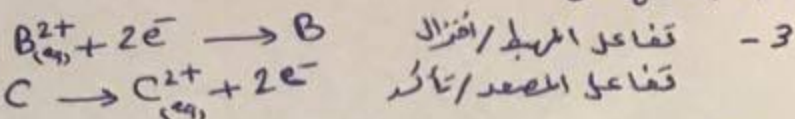 3 - تفاعل المهبط/اختزال B²⁺(aq) + 2e⁻ ⟶ B
تفاعل المصعد/تأكد C ⟶ C²⁺(aq) + 2e⁻